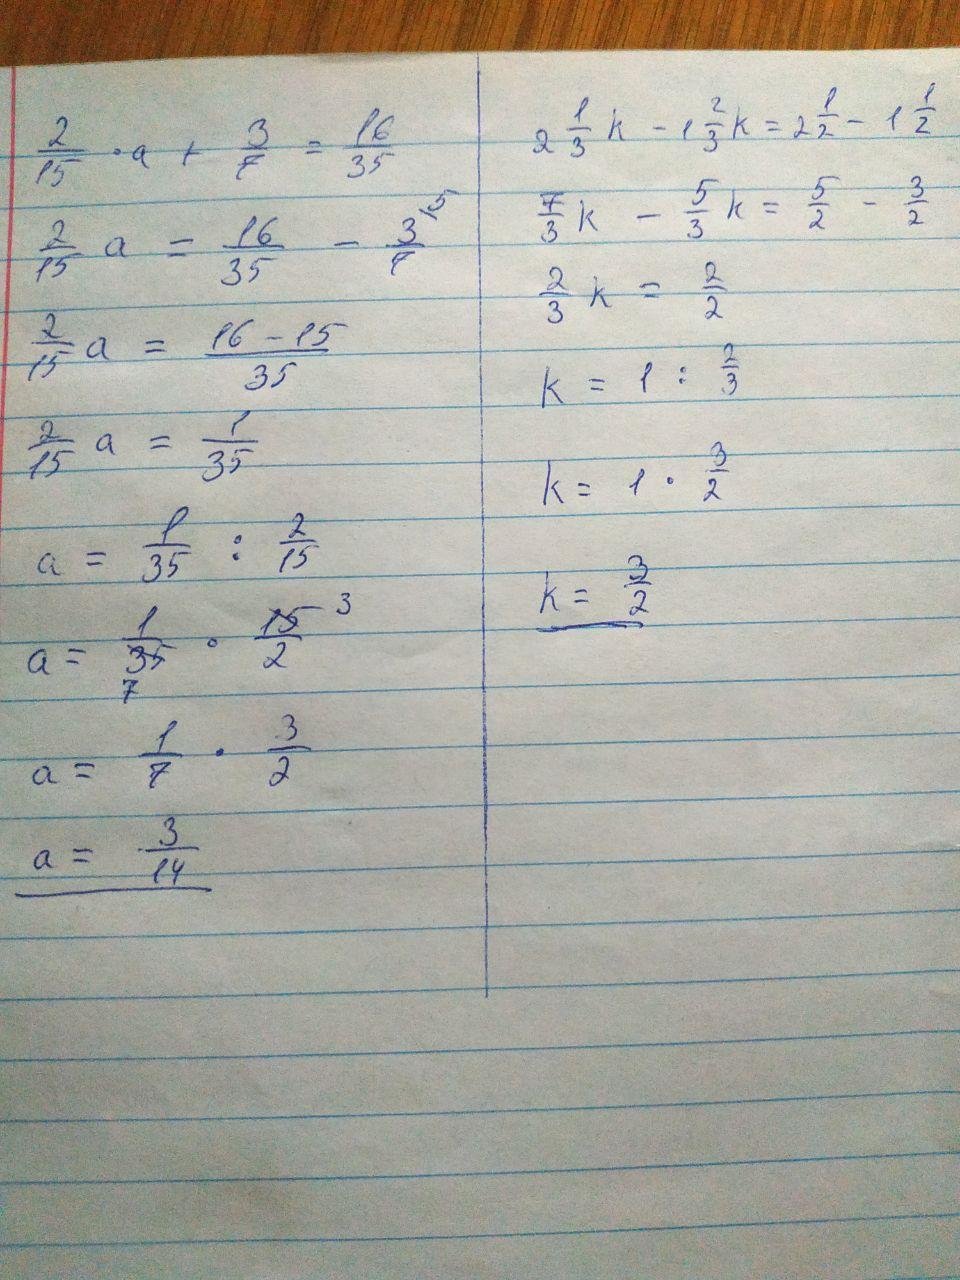 2/15 · a + 3/7 = 16/35
2/15 a = 16/35 - 3/7 15
2/15 a = 16 - 15/35
2/15 a = 1/35
a = 1/35 : 2/15
a = 1/35 7 · 15/2 3
a = 1/7 · 3/2
a = 3/14
2 1/3 k - 1 2/3 k = 2 1/2 - 1 1/2
7/3 k - 5/3 k = 5/2 - 3/2
2/3 k = 2/2
k = 1 : 2/3
k = 1 · 3/2
k = 3/2